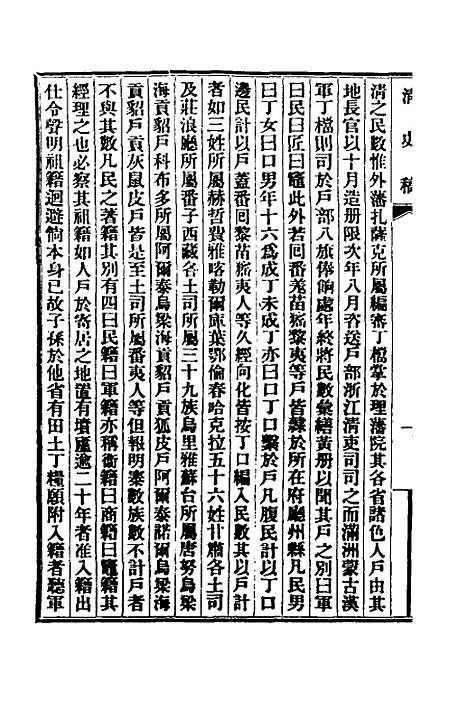 清史稿
一
清之民數惟外藩扎薩克所屬編審丁檔掌於理藩院其各省諸色人戶由其
地長官以十月造册限次年八月咨送戶部浙江清吏司司之而滿洲蒙古漢
軍丁檔則司於戶部八旗俸餉處年終將民數彙繕黃册以聞其戶之別曰軍
曰民曰匠曰竈此外若回番羌苗猺黎夷等戶皆隸於所在府廳州縣凡民男
曰丁女曰口男年十六為成丁未成丁亦曰口丁口繫於戶凡腹民計以丁口
邊民計以戶蓋番回黎苗猺夷人等久經向化皆按丁口編入民數其以戶計
者如三姓所屬赫哲費雅喀勒爾庫葉鄂倫春哈克拉五十六姓甘肅各土司
及莊浪廳所屬番子西藏各土司所屬三十九族烏里雅蘇台所屬唐努烏梁
海貢貂戶科布多所屬阿爾泰烏梁海貢貂戶貢狐皮戶阿爾泰諾爾烏梁海
貢貂戶貢灰鼠皮戶皆是至土司所屬番夷人等但報明寨數族數不計戶者
不與其數凡民之著籍其別有四曰民籍曰軍籍亦稱衞籍曰商籍曰竈籍其
經理之也必察其祖籍如人戶於寄居之地置有墳廬逾二十年者准入籍出
仕令聲明祖籍迴避倘本身已故子孫於他省有田土丁糧願附入籍者聽軍